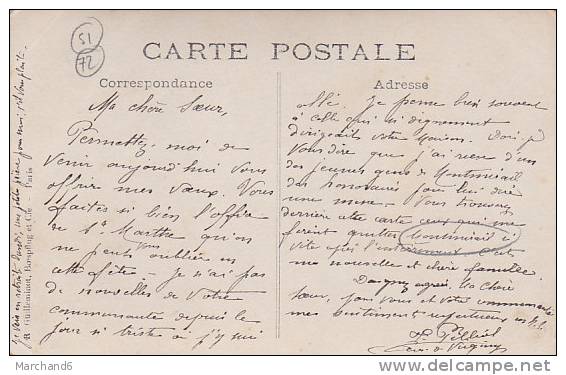 51
72
CARTE POSTALE
Correspondance
Adresse
Ma chère Sœur,
Permettez-moi de
venir aujourd'hui vous
offrir mes vœux. Vous
faites si bien l'office
de Ste Marthe qu'on
ne peut vous oublier en
cette fête. Je n'ai pas
de nouvelles de votre
communauté depuis le
jour si triste où j'y suis
allé. Je pense bien souvent
à celle qui si dignement
dirigeait votre
vous dire que j'ai reçu d'un
des jeunes gens de Montmirail
des honoraires pour lui dire
une messe. Vous trouverez
derrière cette carte ceux qui me
feront quitter Montmirail
vite après l'enterrement. C'est
ma nouvelle et chère famille.
Daignez agréer, ma chère
sœur, pour vous et votre communauté
mes sentiments respectueux en N.S.
Guilleminot, Bœspflug et Cie Paris
Je vais en retraite lundi, une petite prière pour moi, s'il vous plaît.
Marchand6
delcampe.net